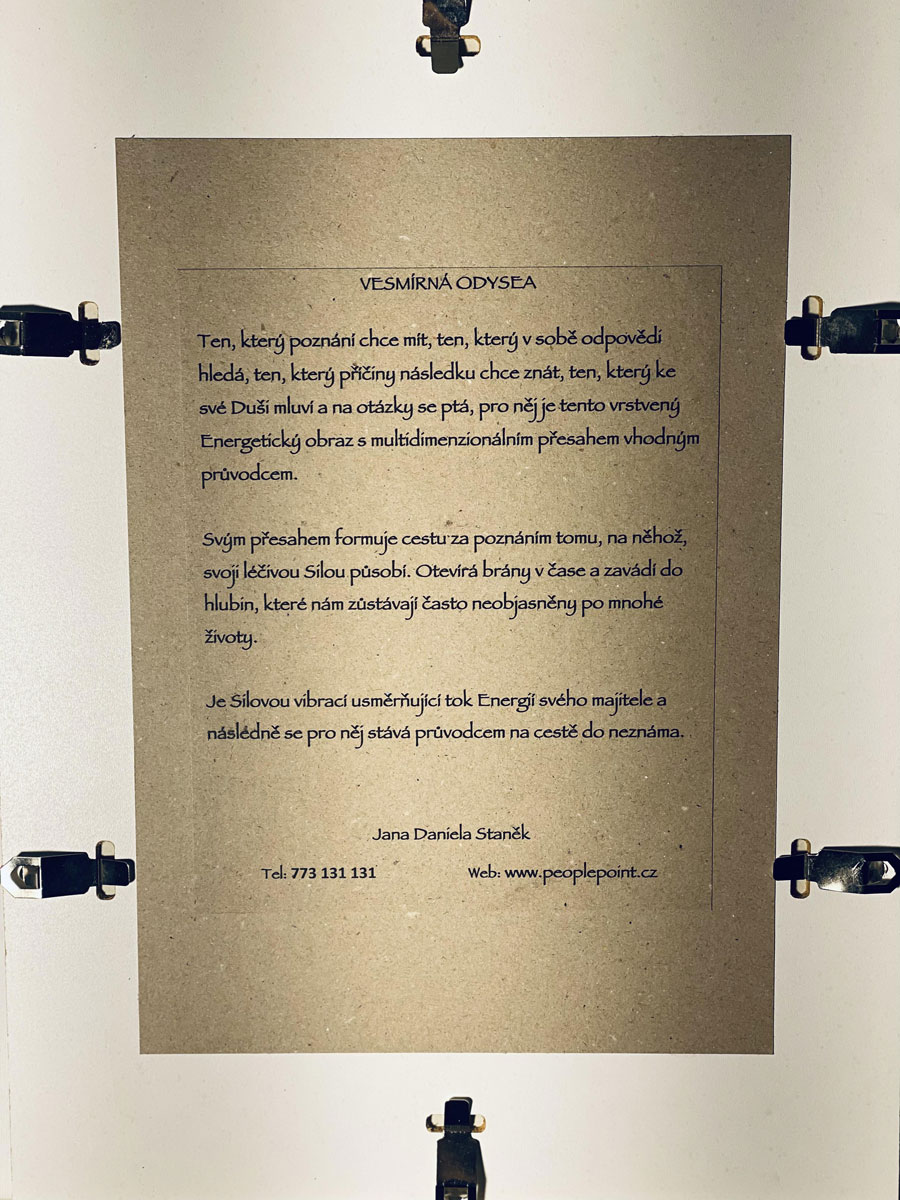 VESMÍRNÁ ODYSEA
Ten, který poznání chce mít, ten, který v sobě odpovědi
hledá, ten, který příčiny následku chce znát, ten, který ke
své Duši mluví a na otázky se ptá, pro něj je tento vrstvený
Energetický obraz s multidimenzionálním přesahem vhodným
průvodcem.
Svým přesahem formuje cestu za poznáním tomu, na něhož,
svojí léčivou Silou působí. Otevírá brány v čase a zavádí do
hlubin, které nám zůstávají často neobjasněny po mnohé
životy.
Je Silovou vibrací usměrňující tok Energií svého majitele a
následně se pro něj stává průvodcem na cestě do neznáma.
Jana Daniela Staněk
Tel: 773 131 131 Web: www.peoplepoint.cz